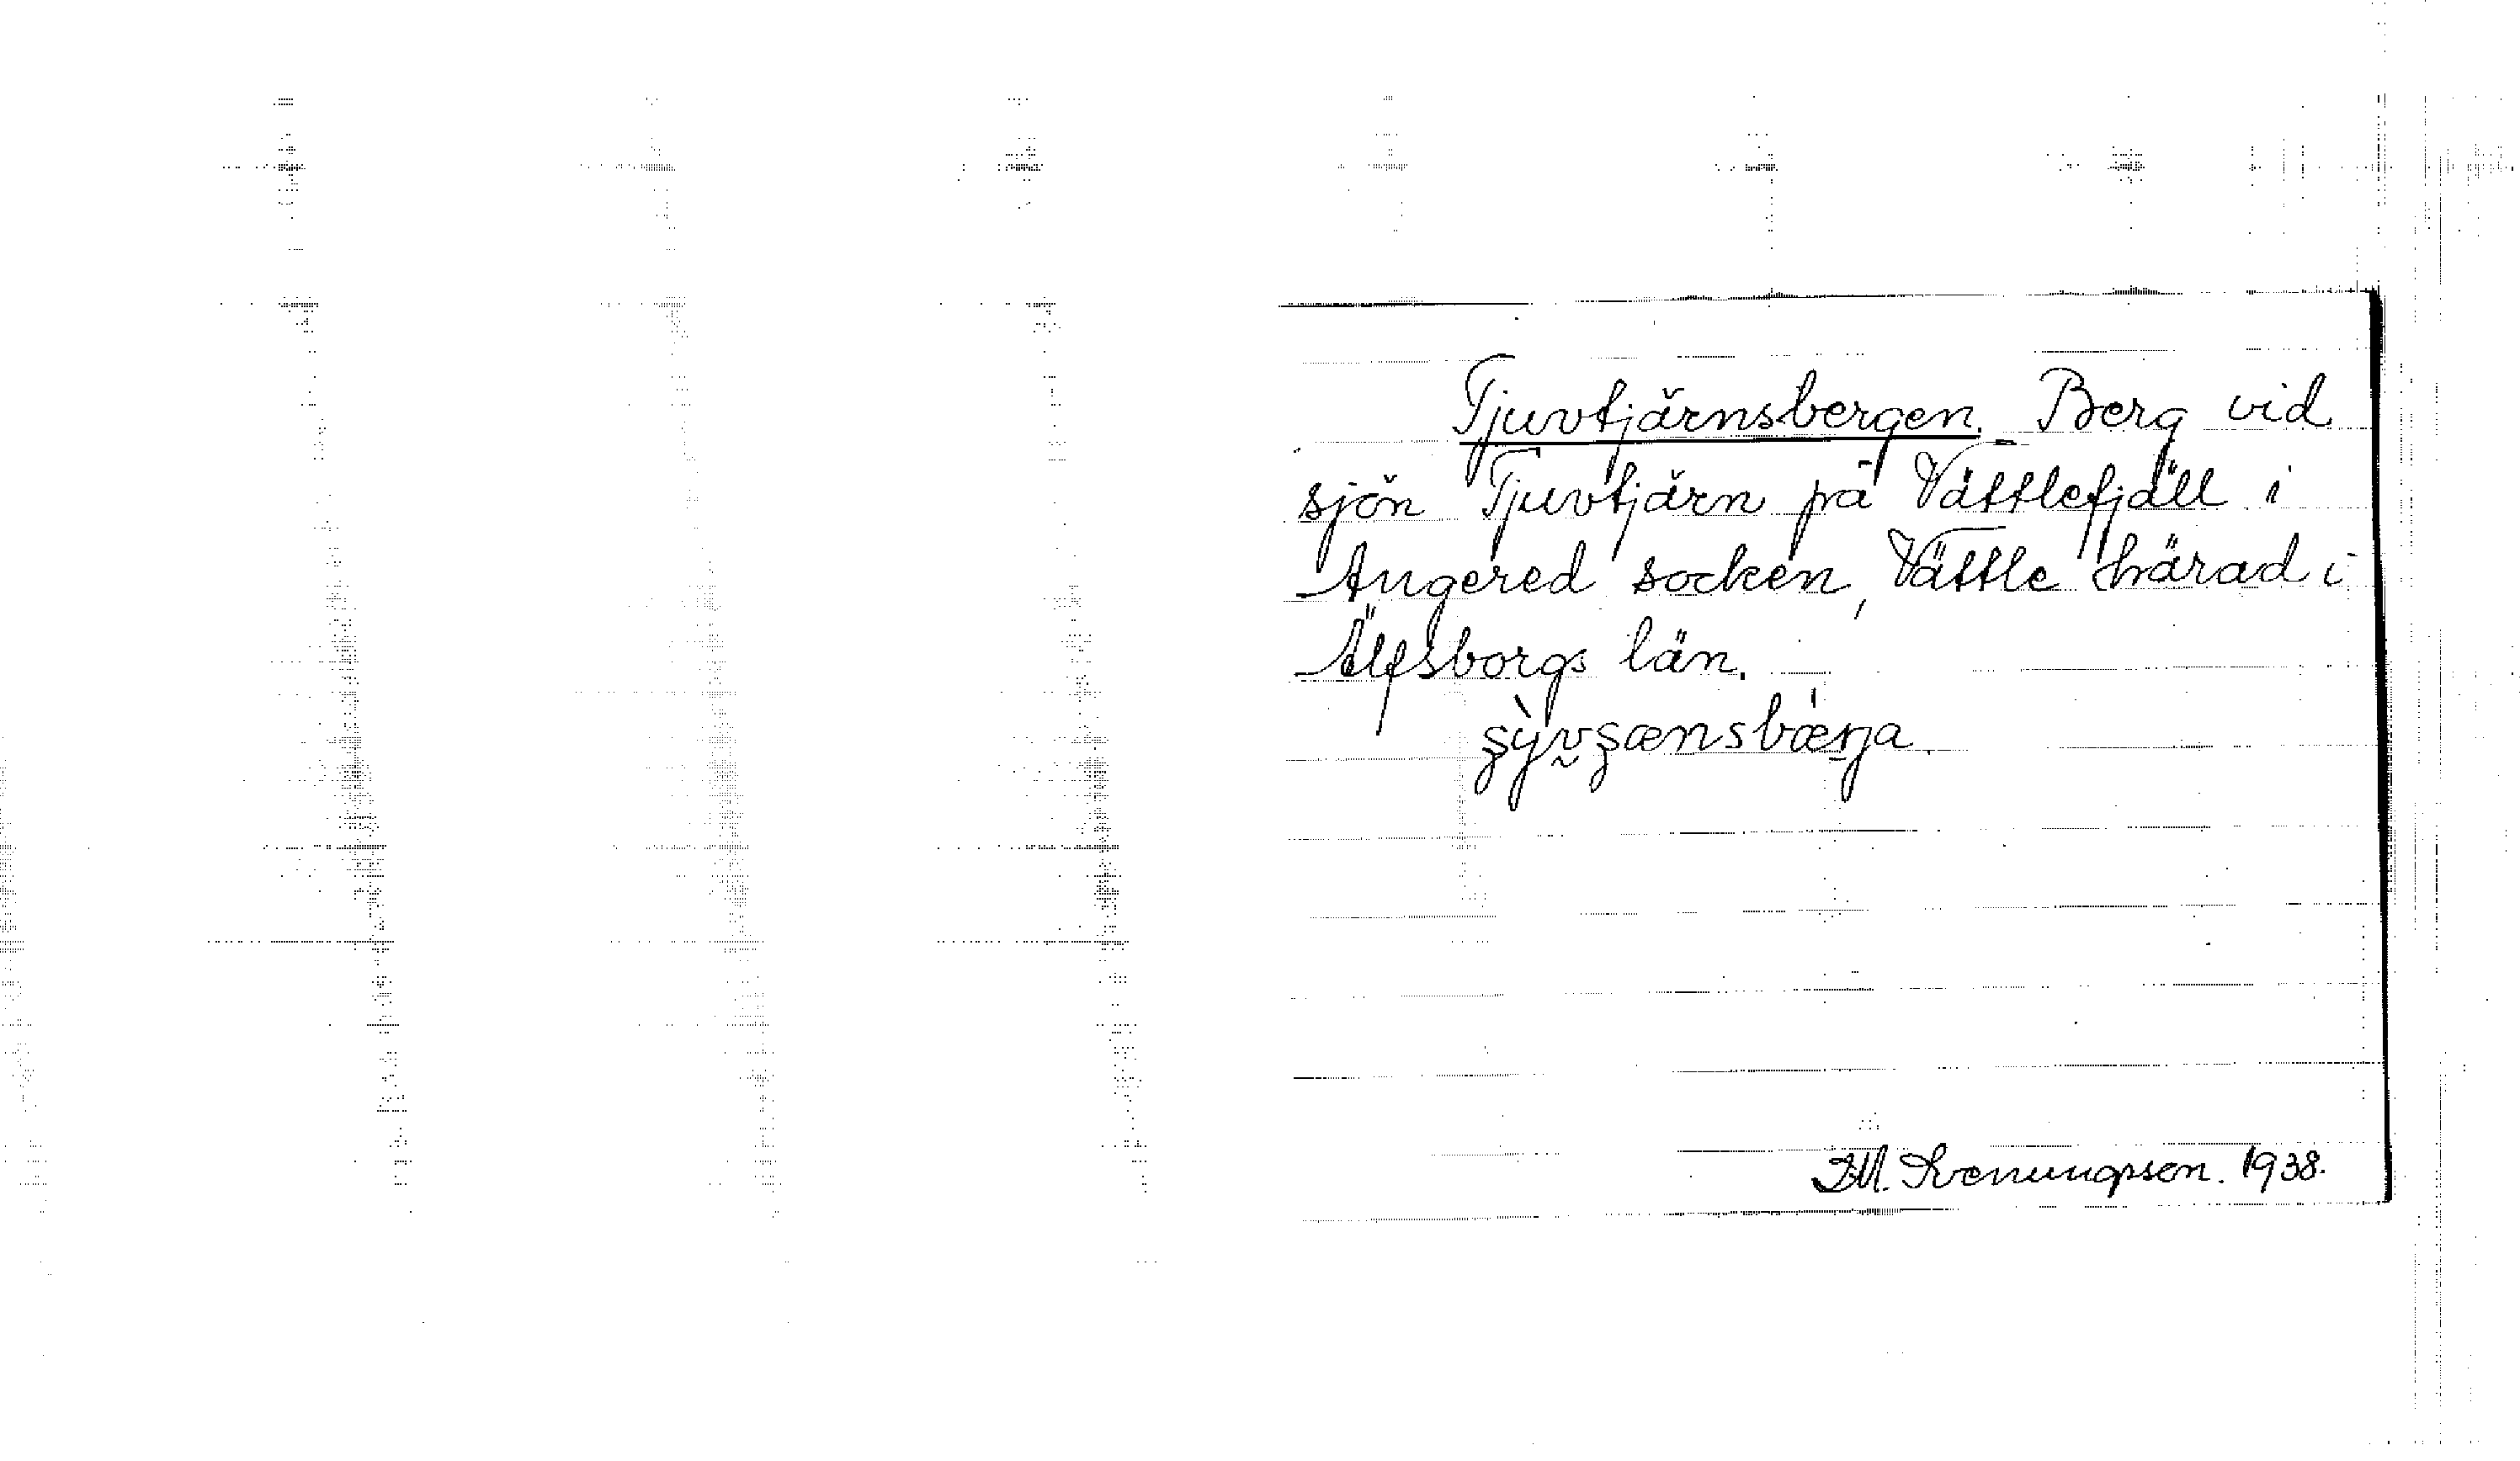 Tjuvtjärnsbergen. Berg vid
sjön Tjuvtjärn på Vättlefjäll i
Angered socken, Vättle härad i
Älfsborgs län.
1938.